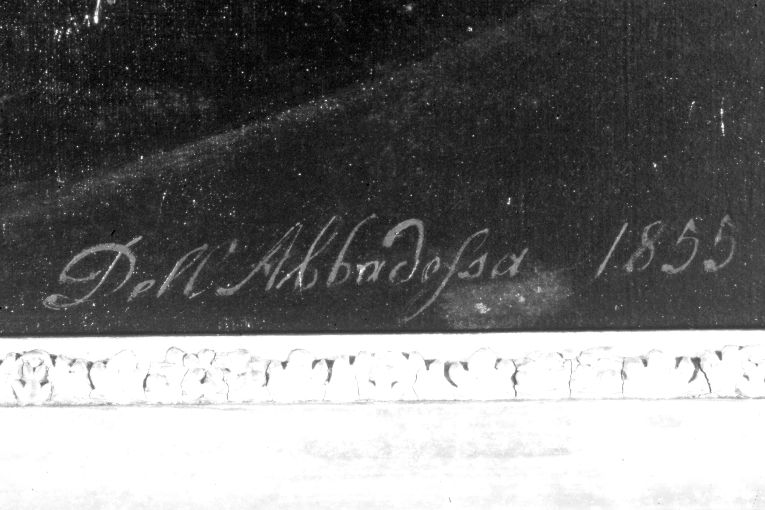 Dell'Abbadeſsa 1855